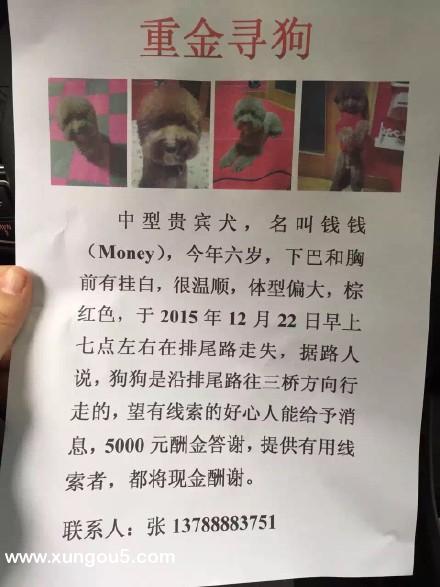 重金寻狗
中型贵宾犬，名叫钱钱
（Money），今年六岁，下巴和胸
前有挂白，很温顺，体型偏大，棕
红色，于 2015 年 12 月 22 日早上
七点左右在排尾路走失，据路人
说，狗狗是沿排尾路往三桥方向行
走的，望有线索的好心人能给予消
息，5000 元酬金答谢，提供有用线
索者，都将现金酬谢。
联系人：张 13788883751
www.xungou5.com